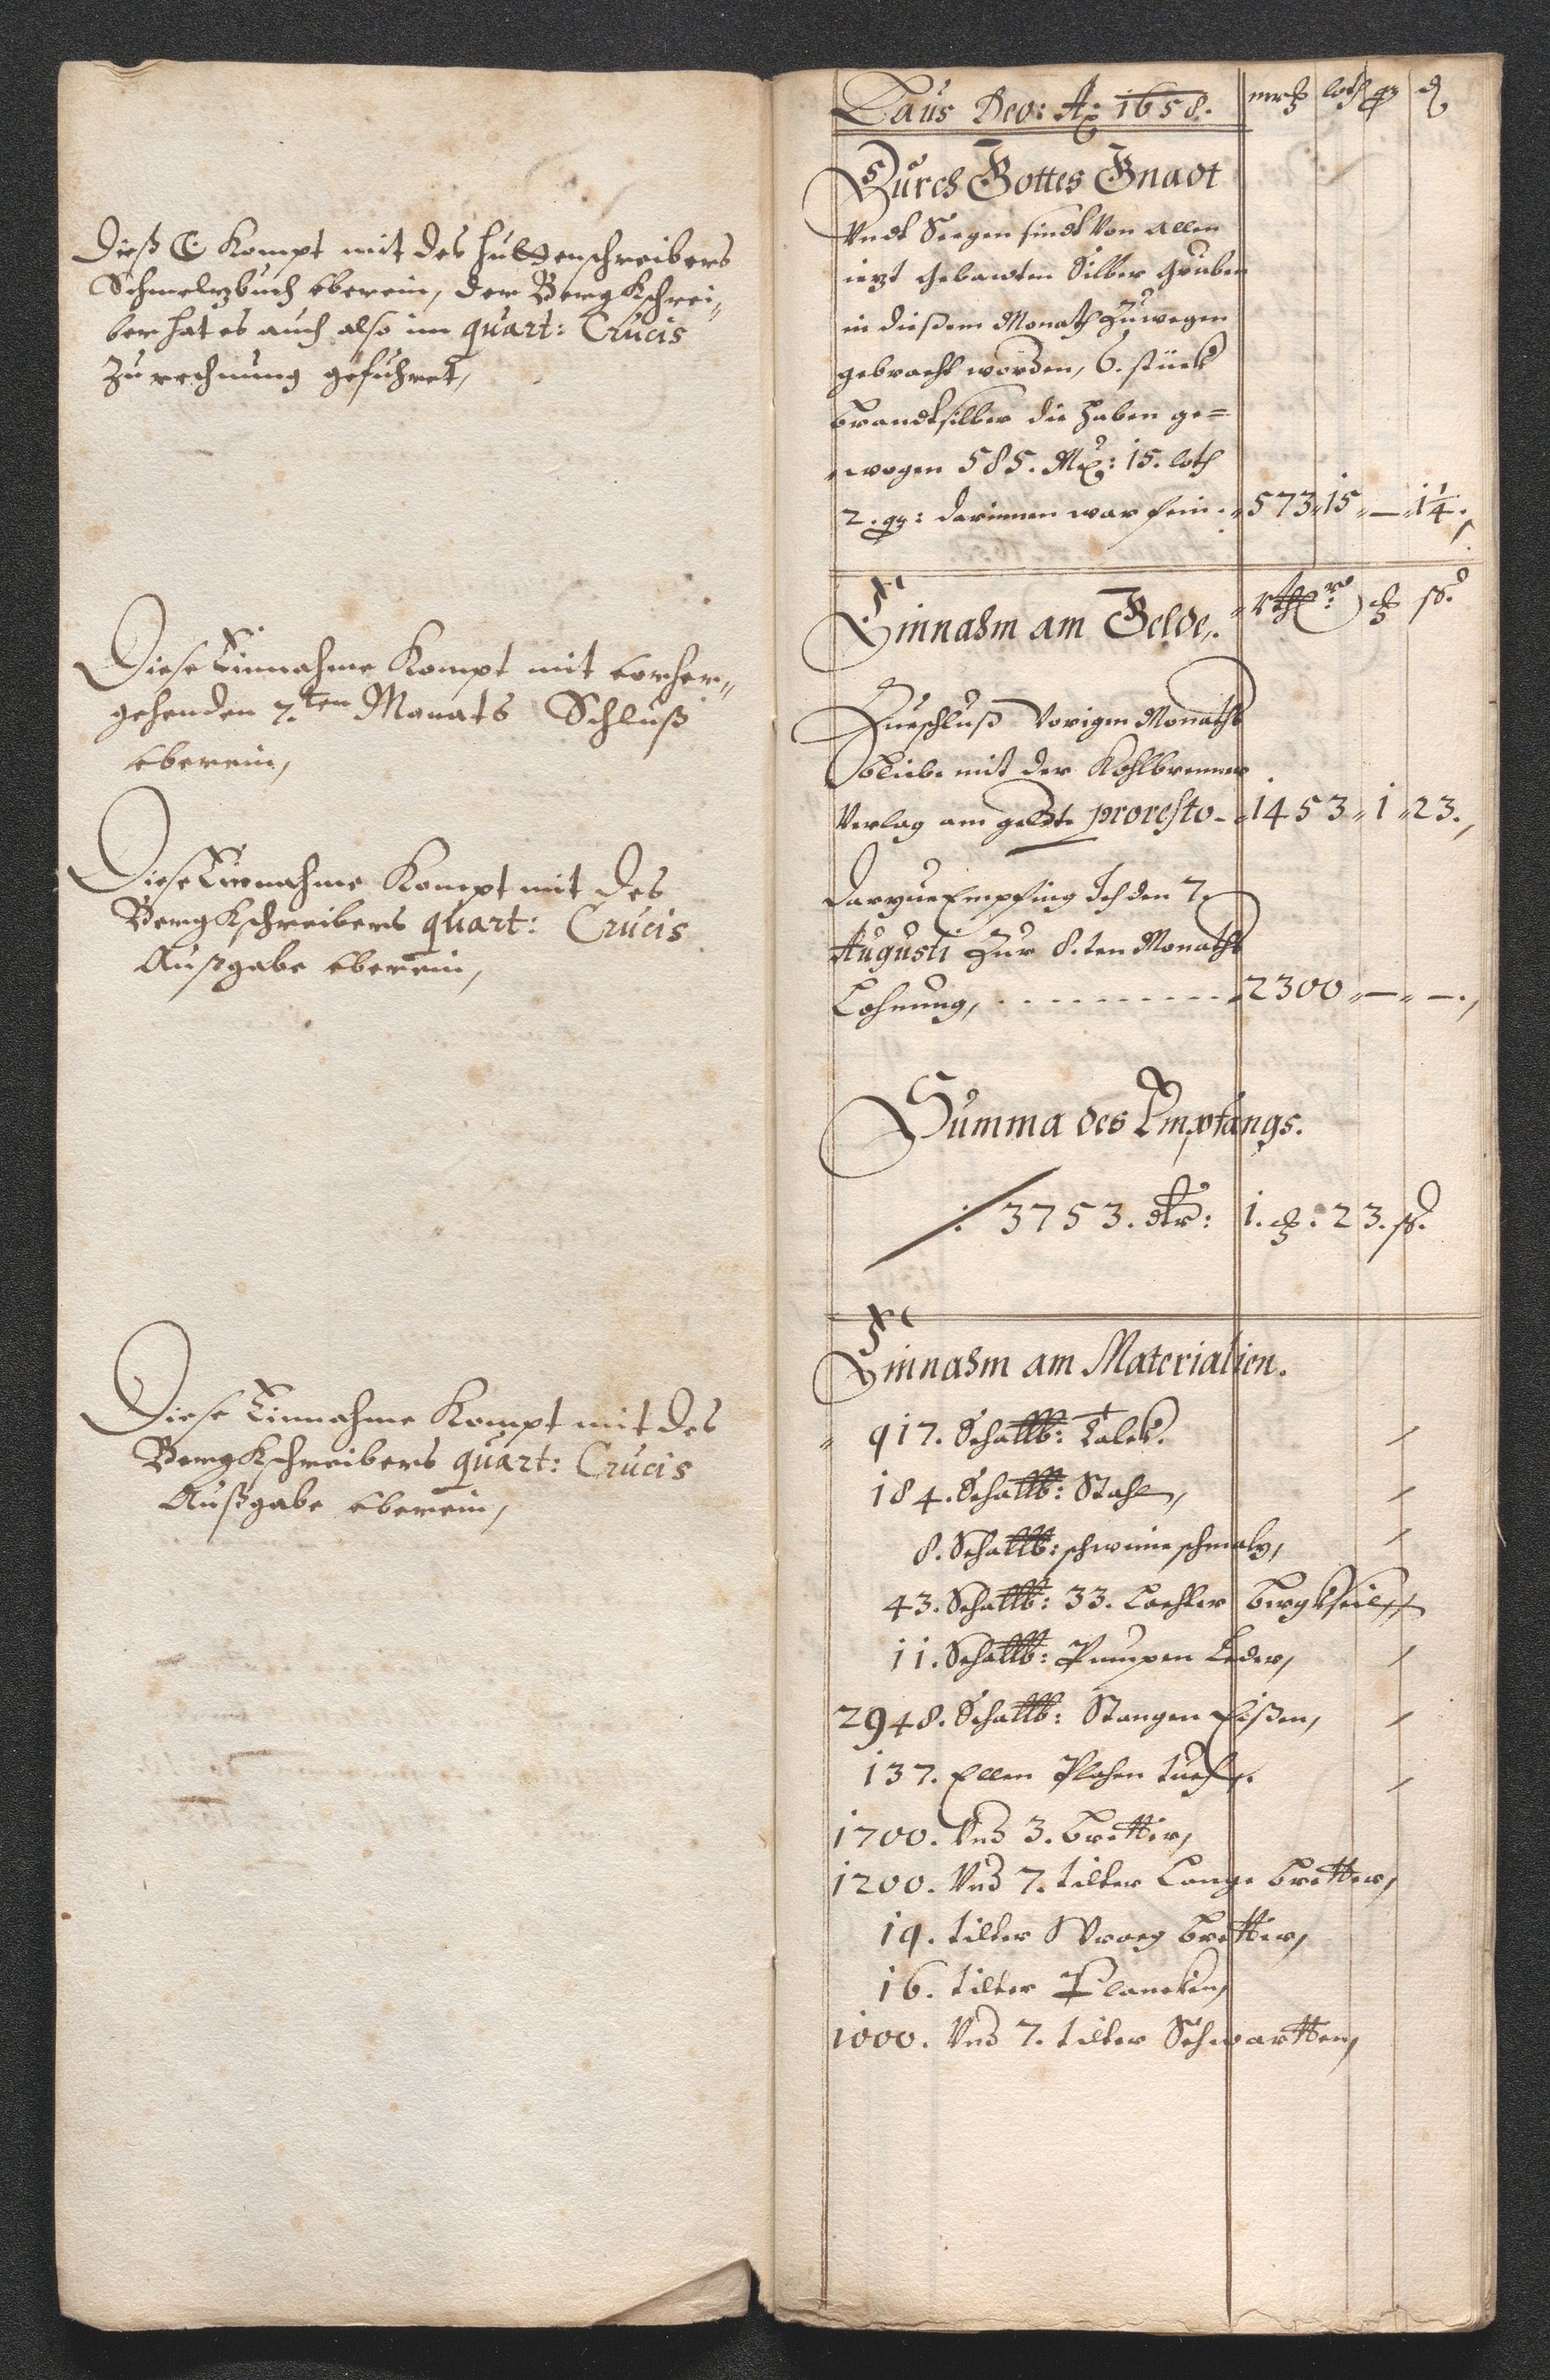 Dieß ☾ Kompt mit des Huttenschreibers
Schmelzbuch eberein, der Bergkschrei„
ber hat es auch also im quart: Crucis
zu rechnung gefuhret,
Diese Einnahme Kompt mit vorher„
gehenden 7.ten Monats Schluß
eberein,
Diese Einnahme Kompt mit des
Bergkschreibers quart: Crucis
Außgabe eberein,
Diese Einnahme Kompt mit des
Bergkschreibers quart: Crucis
Außgabe eberein,
Laus Deo: Aō 1658. mrk loth qz d
Durch Gottes Gnadt
Vndt Seegen sindt Von allen
iezt gebawten Silber Gruben
in dießem Monath Zuwegen
gebracht worden, 6. stück
brandtsilber die haben ge=
wogen 585. Mk: 15. loth
2. qz: darinnen war fein. 573 „ 15 „ — „ 1 1/4.
Einnahm am Gelde. rthr ß.
Zueschluß Vorigen Monaths
bliebe mit der Kohlbrenner
Verlag am geldte pro resto - 1453 „ 1 „ 23.
darzue Empfing Ich den 7.
Augusti Zur 8.ten Monaths
Lohnung, - - - - - - 2300 „ — „ —.
Summa des Empfangs.
/: 3753. dlr: 1. : 23. ß.
Einnahm am Materialien.
917. Schallb: Talck.
184. Schallb: Stahl,
8. Schallb: schweine schmalz,
43. Schallb: 33. Lachter bergkseil,
11. Schallb: Pumpen Leder,
2948. Schallb: Stangen Eißen,
137. Ellen Plahen tuch.
1700. Vnd 3. bretter,
1200. Vnd 7. tilter Lange bretter,
19. tilter bretter,
16. tilter Plancken,
1000. Vnd 7. tilter Schwartten,